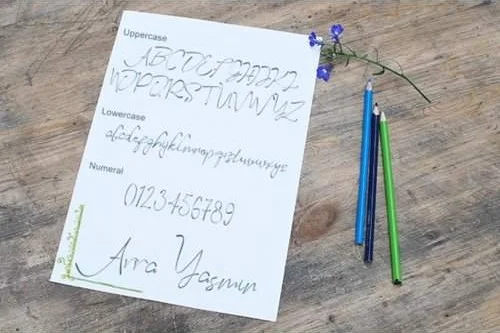 Uppercase
ABCDEFGHIJKL
MNOPQRSTUVWXYZ
Lowercase
abcdefghijklmnopqrstuvwxyz
Numeral
0123456789
Arra Yasmin